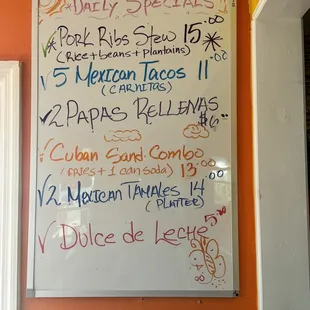 Daily Specials
Pork Ribs Stew 15.00
(Rice + beans + plantains)
5 Mexican Tacos 11.00
(CARNITAS)
2 PAPAS RELLENAS
$6.00
Cuban Sand. Combo
(FRIES + 1 can soda) 13.00
2 Mexican TAMALES 14.00
(PLATTER)
Dulce de Leche 5.50